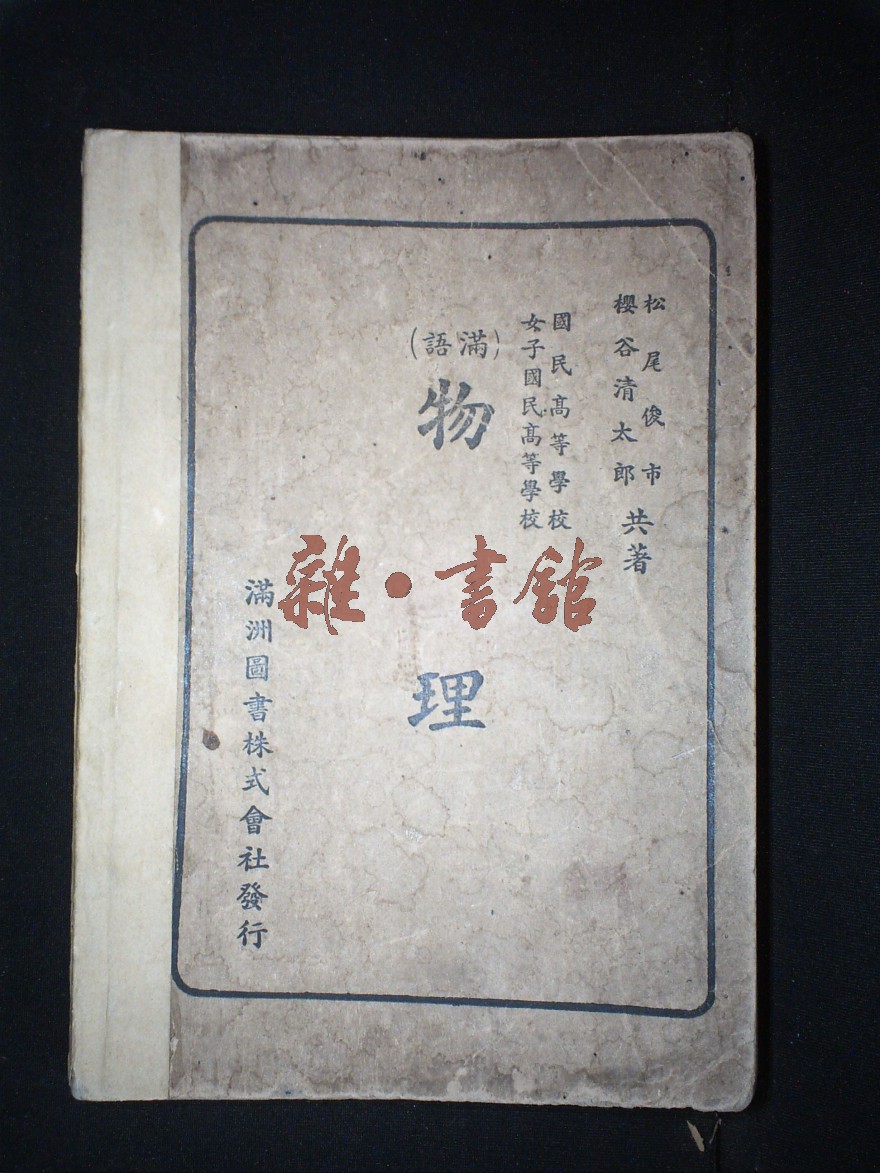 松尾俊市
櫻谷清太郎
共著
國民高等學校
女子國民高等學校
(滿語)
物理
滿洲圖書株式會社發行
雜·書館